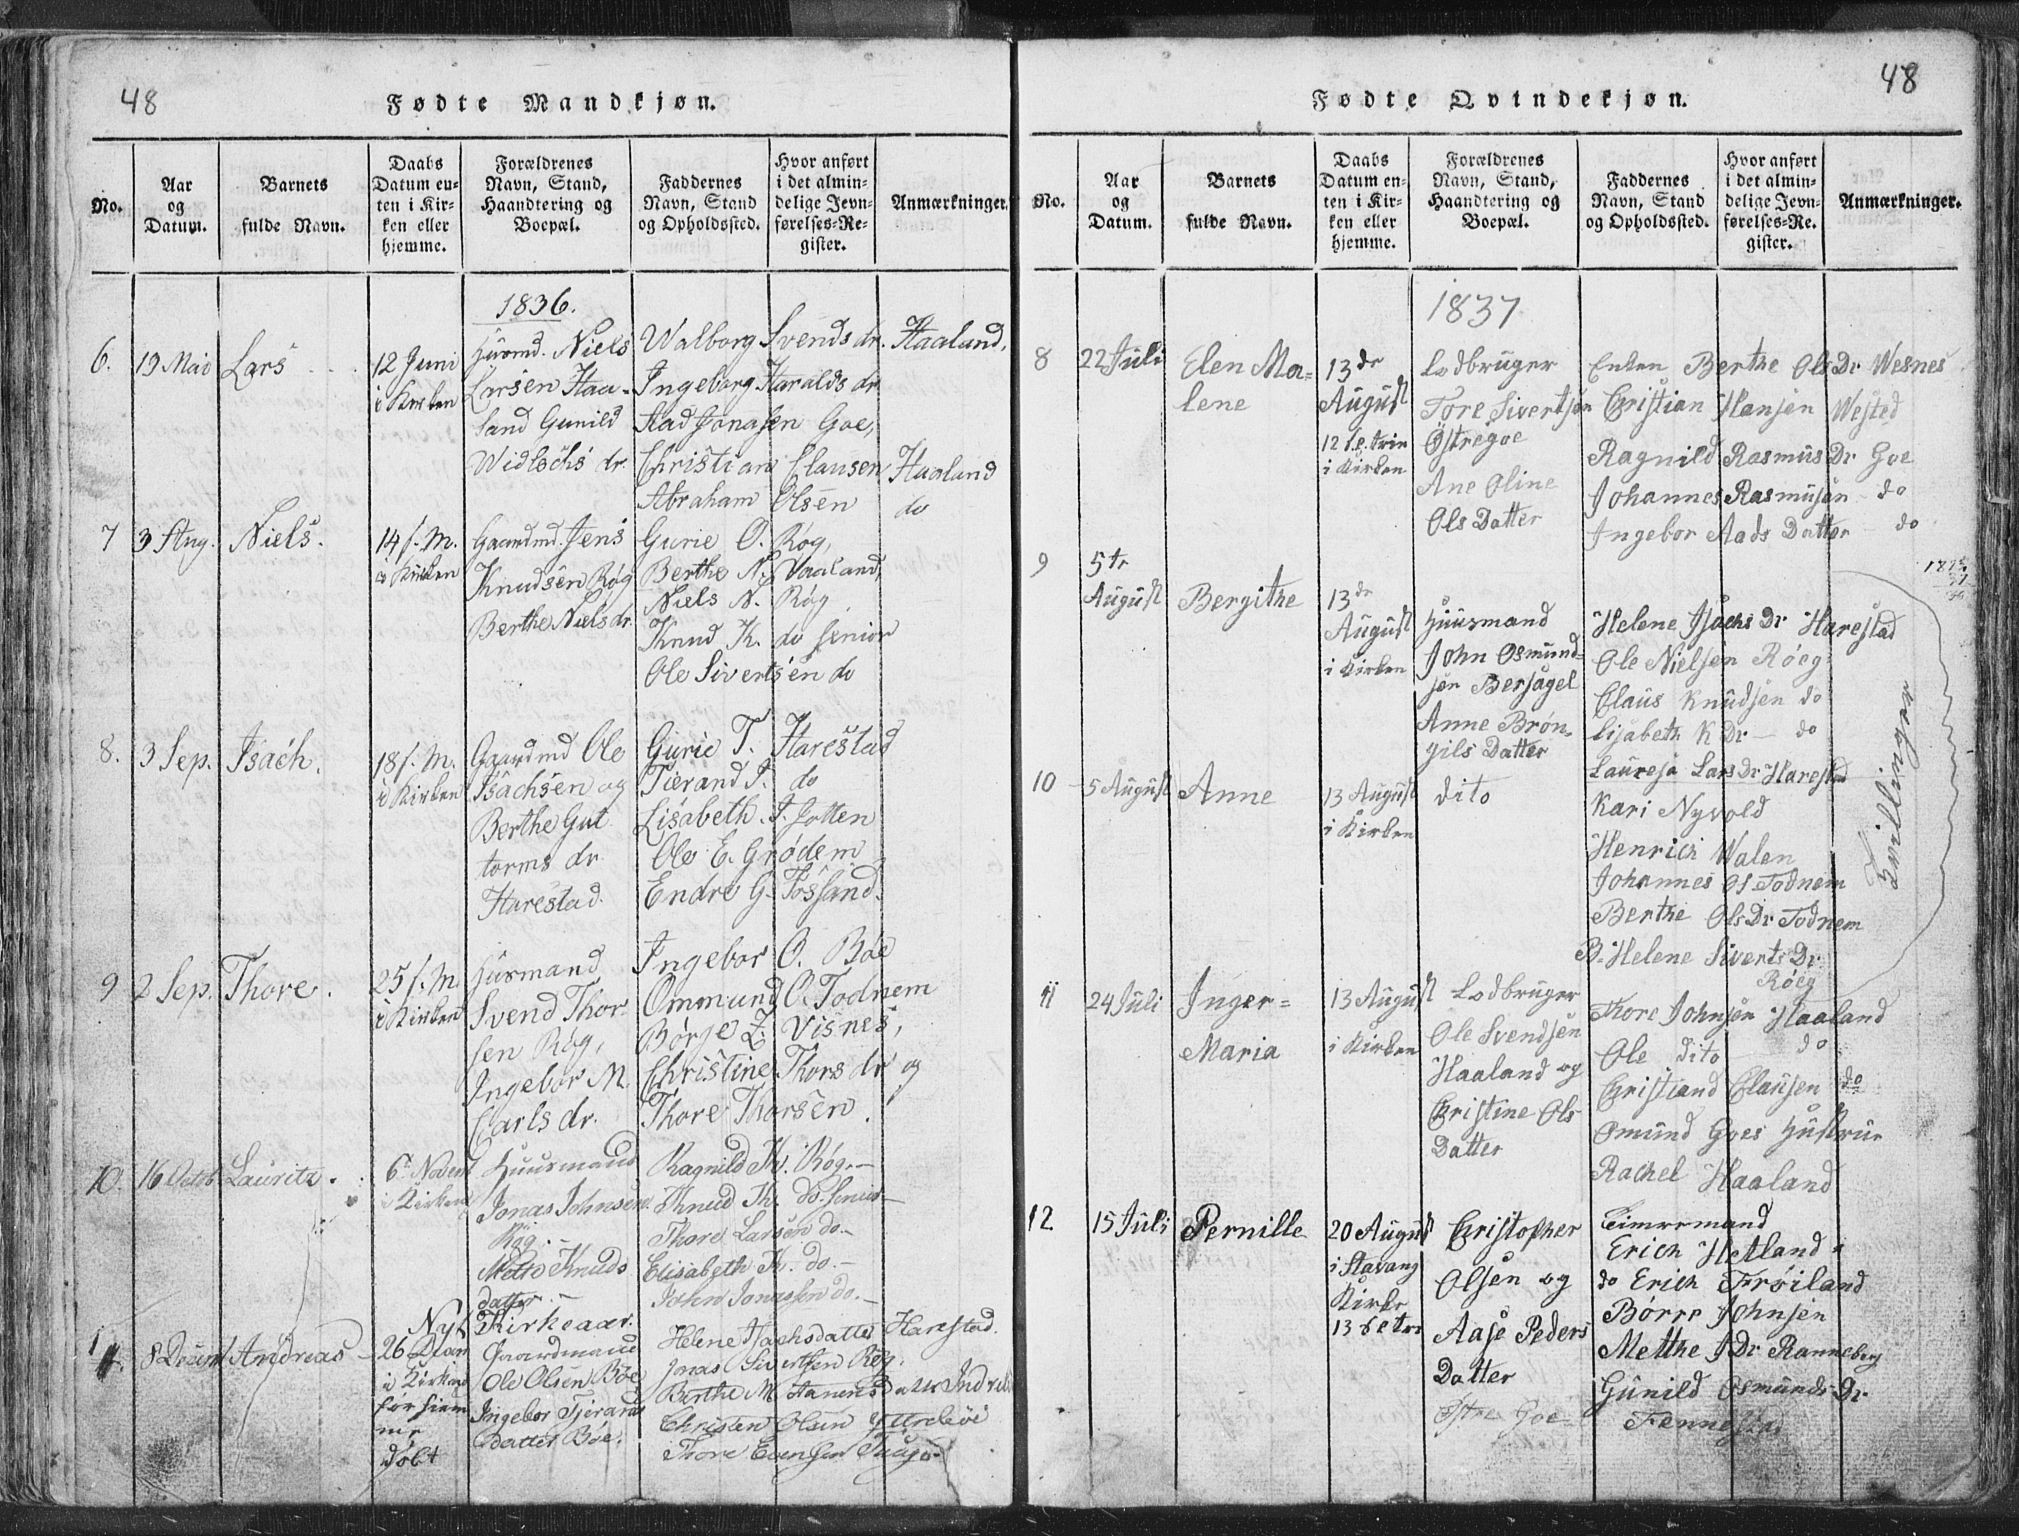 48
Fødte Mandkjøn.
No.
Aar
og
Datum.
Barnets
fulde Navn.
Daabs
Datum en-
ten i Kir-
ken eller
hjemme.
Forældrenes
Navn, Stand,
Haandtering og
Boepæl.
Faddernes
Navn, Stand
og Opholdssted.
Hvor anført
i det almin-
delige Jevn-
førelses-Re-
gister.
Anmærkninger.
1836.
6.
19 Mai
Lars
12 Juni
i Kirken
Huusmd. Niels
Larsen Haa-
land Gunild
Widlechs dr.
Walborg Svends dr. Haaland.
Ingeborg Haralds dr
Aad Jonasen Goe,
Christian Clausen Haaland
Abraham Olsen do
7
3 Aug.
Niels.
14 f. M.
i Kirken
Gaardmd. Jens
Knudsen Røg
Berthe Niels dr.
Gurie O. Røg,
Berthe N. Vaaland,
Niels N. Røg,
Knud K. do senior
Ole Sivertsen do
8.
3 Sep.
Isach.
18 f. M.
i Kirken
Gaardmd Ole
Isachsen og
Berthe Gut
torms dr.
Harestad.
Gurie T. Harestad
Tierand I. do
Lisabeth. I. Jotten
Ole E. Grødem
Endre G. Tøssand.
9
2 Sep.
Thore.
25 f. M.
i Kirken
Husmand
Svend Thor
sen Røg,
Ingebor M.
Carls dr.
Ingebor O. Bøe
Ommund O. Todnem
Børge Z. Visnes,
Christine Thors dr og
Thore Thorsen.
10.
16 Octob
Lauritz.
6 Novem
i Kirken
Huusmand
Jonas Johnsen
Røg.
Mette Knuds
datter.
Ragnild Kn. Røg.
Knud Kn. do. senior
Thore Larsen do.
Elisabeth K. do.
John Jonassen do.
Nyt Kirkeaar.
11.
8 Decem
Andreas
26 D
i Kirken
før hiem
me
døbt
Gaardmand
Ole Olsen Bøe
Ingebor Tjerands
datter Bøe.
Helene Isachsdatter Harestad.
Jonas Sivertsen Røg.
Berthe M.
Christen Olsen Yttrebøe
Thore Evensen
48
Fødte Qvindekjøn.
No.
Aar
og
Datum.
Barnets
fulde Navn.
Daabs
Datum en-
ten i Kir-
ken eller
hjemme.
Forældrenes
Navn, Stand,
Haandtering og
Boepæl.
Faddernes
Navn, Stand
og Opholdssted.
Hvor anført
i det almin-
delige Jevn-
førelses-Re.
gister.
Anmærkninger.
1837
8
22 Juli
Elen Ma-
lene
13de
August
12 S. e. trin
i Kirken
Lodbruger
Tore Sivertsen
Østregoe
Ane Oline
Ols Datter
Enken Berthe Ols Dr Wesnes
Christian Hansen Wested
Ragnild Rasmus Dr Goe
Johannes Rasmusen do
Ingebor Aads Datter do
9
5te
August
Bergithe
13de
August
i Kirken
Huusmand
John Osmund-
sen Bersagel
Anne Brøn-
gils Datter
Helene Isachs Dr Harestad
Ole Nielsen Røeg
Claus Knudsen do
Lisabeth K Dr do
Lauresa Lars Dr Harestad
10
5 August
Anne
13 August
i Kirken
dito
Kari Nyvold
Henrich Walen
Johannes Ols Todnem
Berthe Ols Dr Todnem
B. Helene Siverts Dr
Røeg
Tvillinger
11
24 Juli
Inger-
Maria
13 August
i Kirken
Lodbruger
Ole Svendsen
Haaland og
Christine Ols
Datter
Thore Johnsen Haaland
Ole dito do
Christiand Clausen do
Osmund Goes Hustrue
Rachel Haaland
12
15 Juli
Pernille
20 August
i Stavang
Kirke
13 S e tri
Christopher
Olsen og
Aase Peders
Datter
Østre Goe
Timermand
Erich Hetland
do Erich Frøiland
Borre Johnsen
Metthe J Dr Ranneberg
Gunild Osmunds Dr
Fennestad